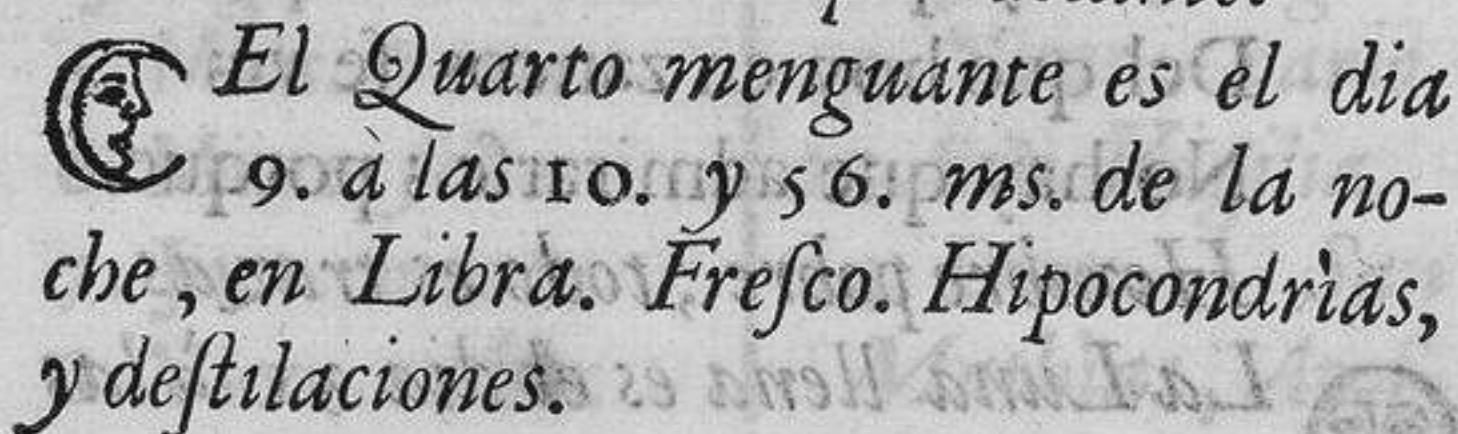 El Quarto menguante es el dia
9. à las 10. y 56. ms. de la no-
che, en Libra. Freſco. Hipocondrìas,
y deſtilaciones.